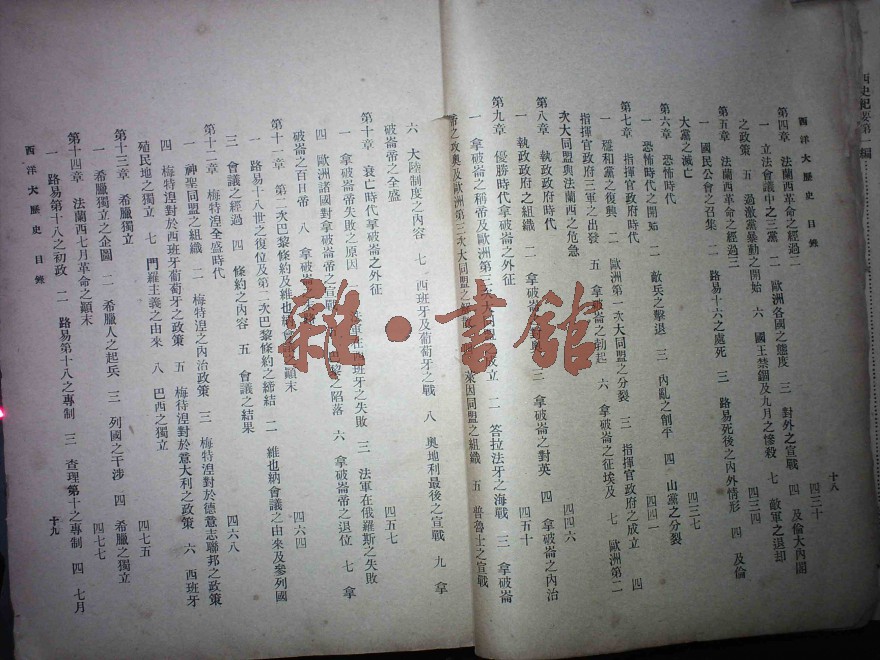 西洋大歷史 目錄
十八
第四章 法蘭西革命之經過二
四三十
一 立法會議中之三黨 二 歐洲各國之態度 三 對外之宣戰 四 及倫大內閣
之政策 五 過激黨暴動之開始 六 國王禁錮及九月之慘殺 七 敵軍之退却
第五章 法蘭西革命之經過三
四三四
一 國民公會之召集 二 路易十六之處死 三 路易死後之內外情形 四 及倫
大黨之滅亡
第六章 恐怖時代
四三七
一 恐怖時代之開始 二 敵兵之擊退 三 內亂之削平 四 山黨之分裂
第七章 指揮官政府時代
四四一
一 穩和黨之復興 二 歐洲第一次大同盟之分裂 三 指揮官政府之成立 四
指揮官政府三軍之出發 五 拿破崙之勃起 六 拿破崙之征埃及 七 歐洲第二
次大同盟與法蘭西之危急
第八章 執政政府時代
四四六
一 執政政府之組織 二 拿破崙 三 拿破崙之對英 四 拿破崙之內治
第九章 優勝時代拿破崙之外征
四五十
一 拿破崙之稱帝及歐洲第三次大同盟之成立 二 答拉法牙之海戰 三 拿破崙
帝之攻奧及歐洲第三次大同盟之 來因同盟之組織 五 普魯士之宣戰
六 大陸制度之內容 七 西班牙及葡萄牙之戰 八 奧地利最後之宣戰 九 拿
破崙帝之全盛
第十章 衰亡時代拿破崙之外征
四五七
一 拿破崙帝失敗之原因 軍在西班牙之失敗 三 法軍在俄羅斯之失敗
四 歐洲諸國對拿破崙帝之宣戰 之陷落 六 拿破崙帝之退位 七 拿
破崙之百日帝 八 拿破崙之
第十一章 第二次巴黎條約及維也納會 顛末
四六四
一 路易十八世之復位及第二次巴黎條約之締結 二 維也納會議之由來及參列國
三 會議之經過 四 條約之內容 五 會議之結果
第十二章 梅特涅全盛時代
四六八
一 神聖同盟之組織 二 梅特涅之內治政策 三 梅特涅對於德意志聯邦之政策
四 梅特涅對於西班牙葡萄牙之政策 五 梅特涅對於意大利之政策 六 西班牙
殖民地之獨立 七 門羅主義之由來 八 巴西之獨立
第十三章 希臘獨立
四七五
一 希臘獨立之企圖 二 希臘人之起兵 三 列國之干涉 四 希臘之獨立
第十四章 法蘭西七月革命之顛末
四七七
一 路易第十八之初政 二 路易第十八之專制 三 查理第十之專制 四 七月
西洋大歷史 目錄
十九
雜·書館